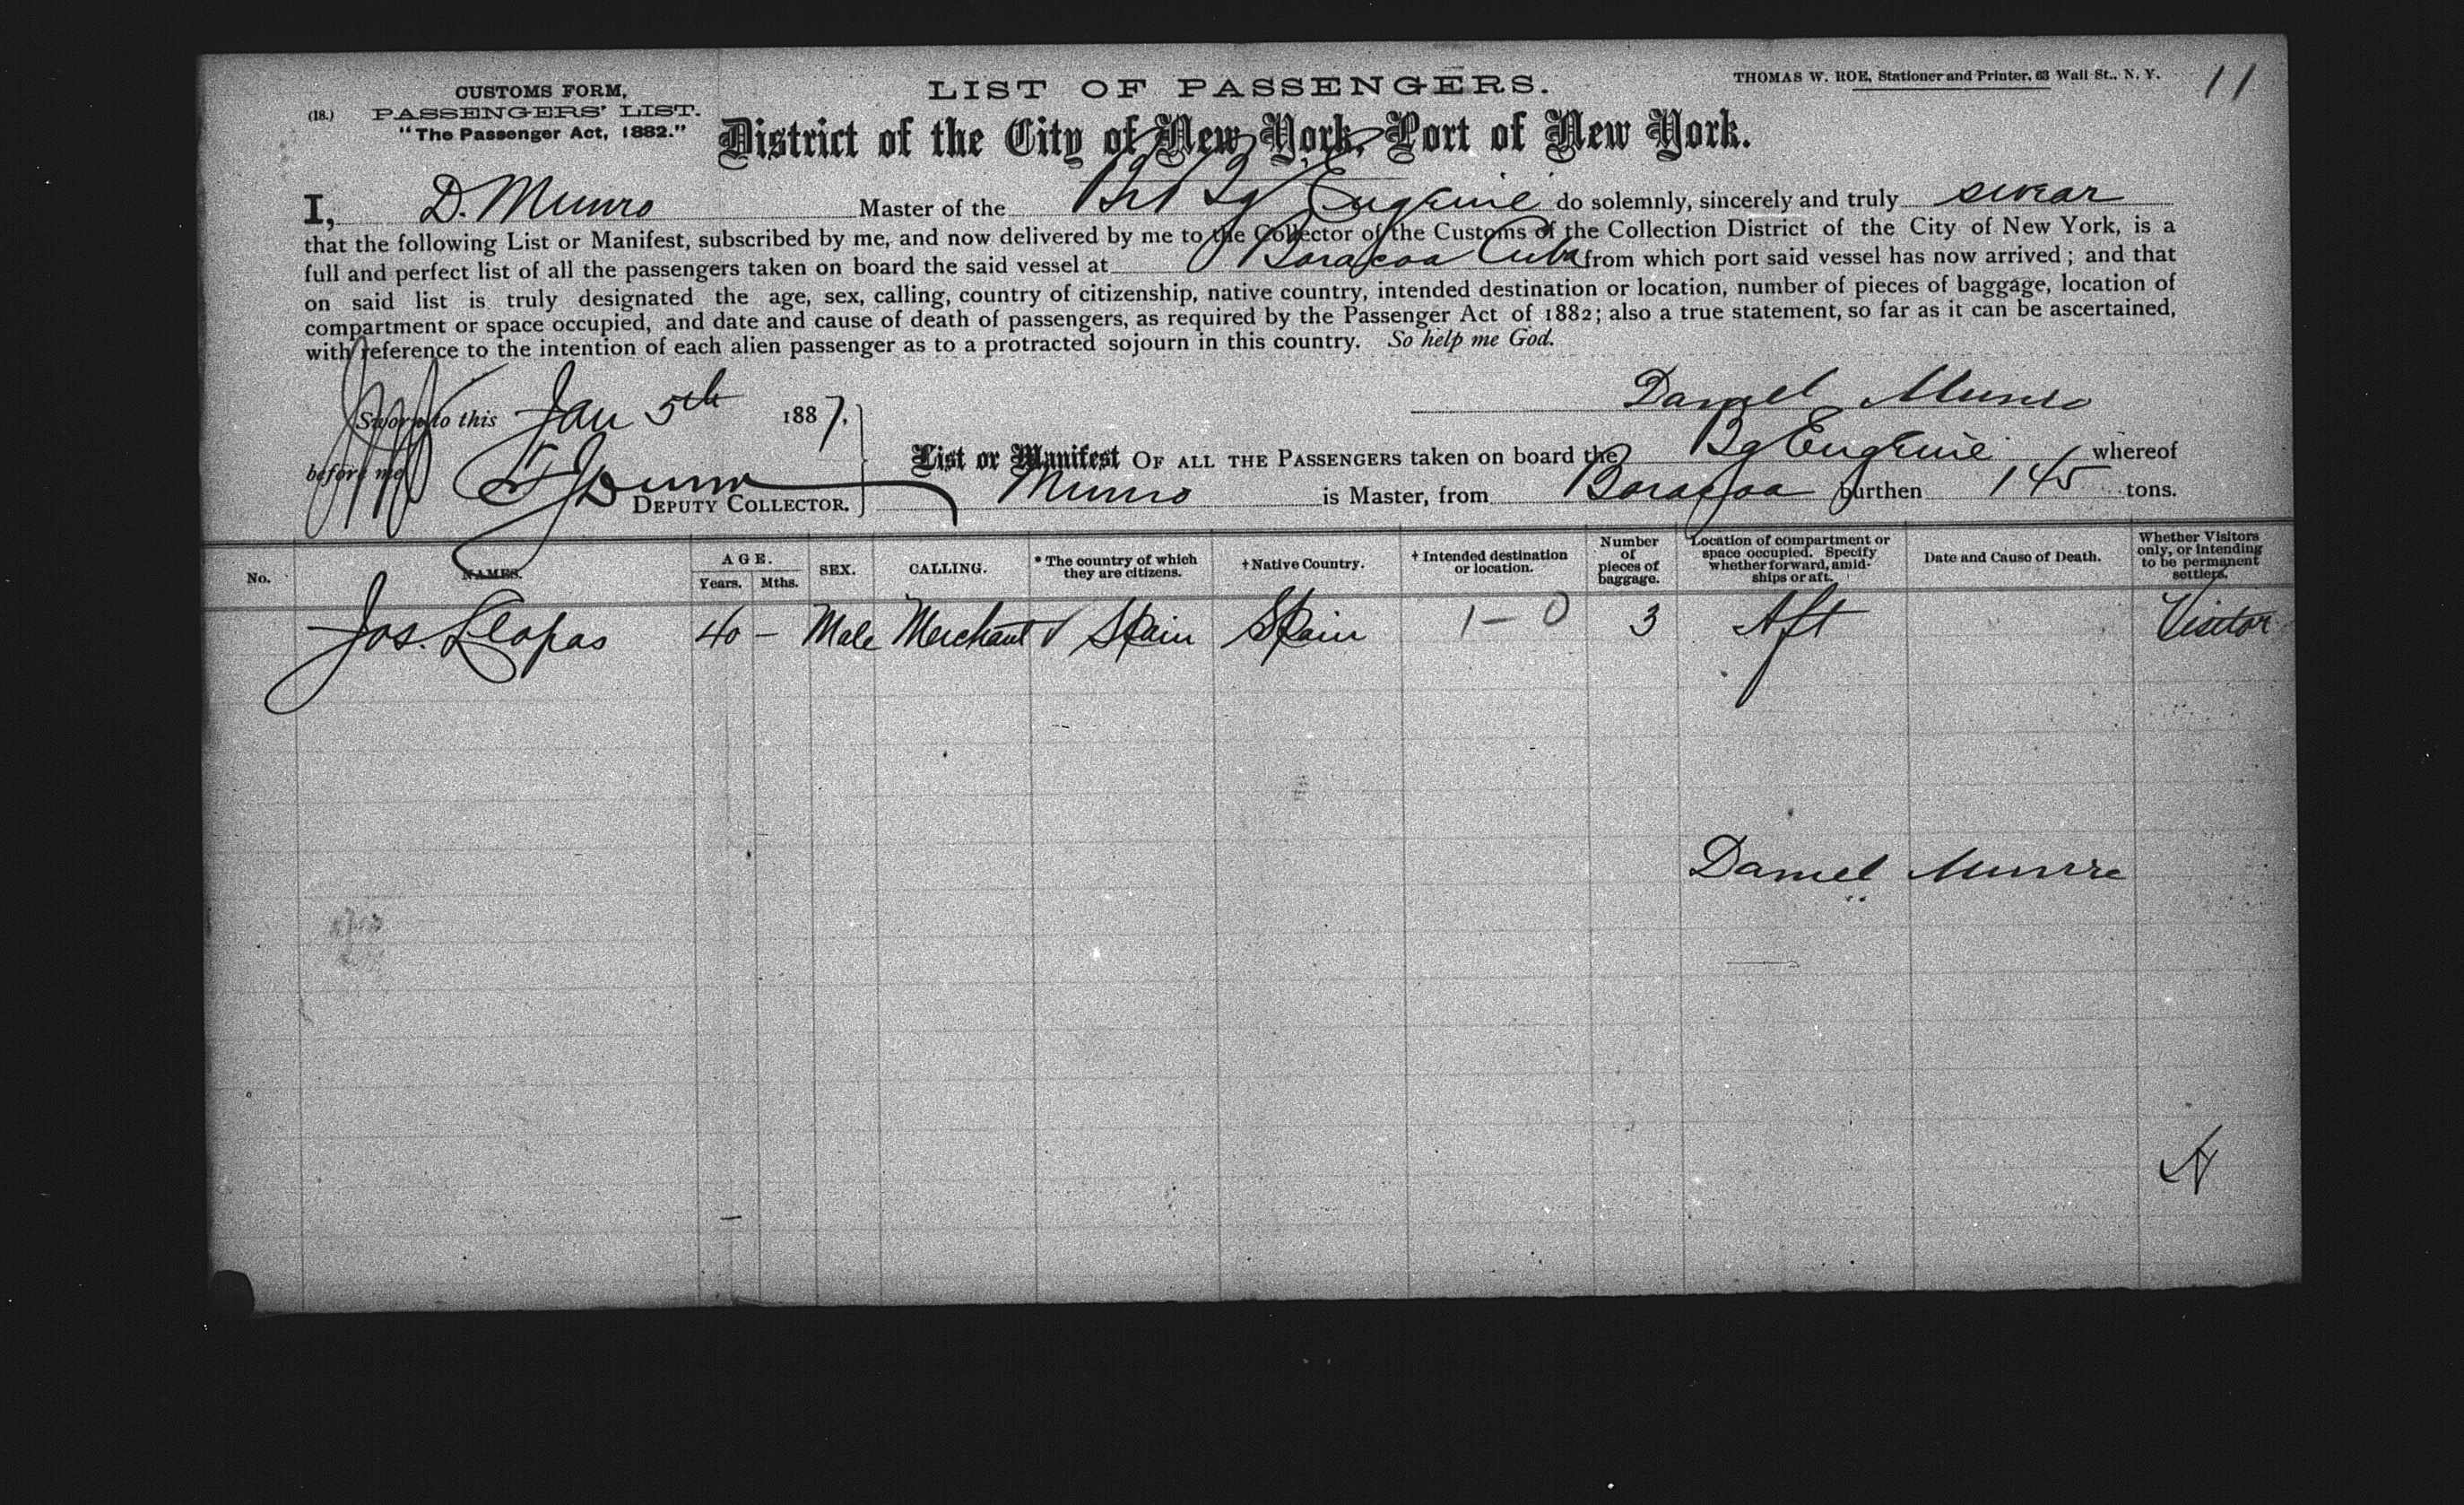 CUSTOMS FORM,
(18.) PASSENGERS' LIST.
"The Passenger Act, 1882."
LIST OF PASSENGERS.
THOMAS W. ROE, Stationer and Printer, 63 Wall St., N. Y.
11
District of the City of New York, Port of New York.
I, D. Munro Master of the Brt Bg Eugenie do solemnly, sincerely and truly swear
that the following List or Manifest, subscribed by me, and now delivered by me to the Collector of the Customs of the Collection District of the City of New York, is a
full and perfect list of all the passengers taken on board the said vessel at Baracoa Cuba from which port said vessel has now arrived; and that
on said list is truly designated the age, sex, calling, country of citizenship, native country, intended destination or location, number of pieces of baggage, location of
compartment or space occupied, and date and cause of death of passengers, as required by the Passenger Act of 1882; also a true statement, so far as it can be ascertained,
with reference to the intention of each alien passenger as to a protracted sojourn in this country. So help me God.
Sworn to this Jan 5th 1887.
Daniel Munro
before me Dunn
DEPUTY COLLECTOR.
List or Manifest OF ALL THE PASSENGERS taken on board the Bg Eugenie whereof
Munro is Master, from Baracoa burthen 145 tons.
No. NAMES. AGE. Years. Mths. SEX. CALLING. * The country of which they are citizens. † Native Country. † Intended destination or location. Number of pieces of baggage. Location of compartment or space occupied. Specify whether forward, amidships or aft. Date and Cause of Death. Whether Visitors only, or intending to be permanent settlers.
Jos. 40 – Male Merchant Spain Spain 1 – 0 3 Aft Visitor
Daniel Munro